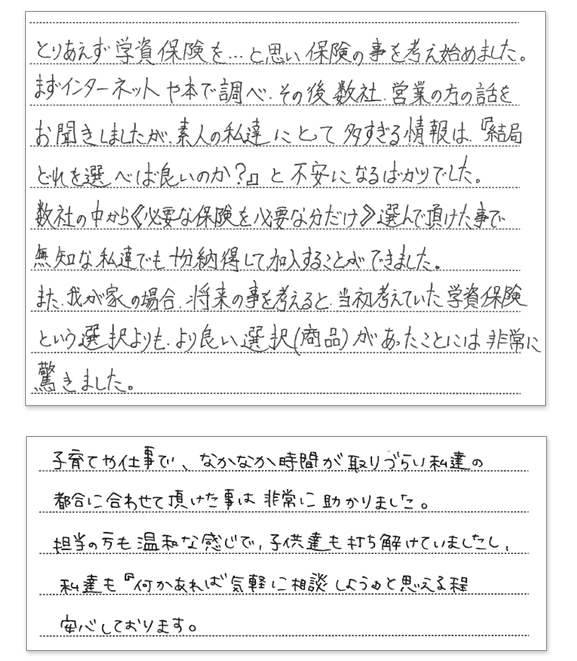 とりあえず学資保険を…と思い保険の事を考え始めました。
まずインターネットや本で調べ、その後数社、営業の方の話を
お聞きしましたが、素人の私達にとって多すぎる情報は、『結局
どれを選べば良いのか?』と不安になるばかりでした。
数社の中から《必要な保険を必要な分だけ》選んで頂けた事で
無知な私達でも十分納得して加入することができました。
また、我が家の場合、将来の事を考えると、当初考えていた学資保険
という選択よりも、より良い選択(商品)があったことには非常に
驚きました。
子育てや仕事で、なかなか時間が取りづらい私達の
都合に合わせて頂けた事は非常に助かりました。
担当の方も温和な感じで、子供達も打ち解けていましたし、
私達も『何かあれば気軽に相談しよう』と思える程
安心しております。